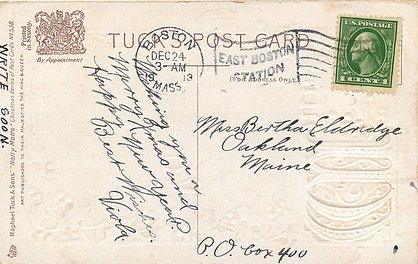 TUCK'S POST CARD
Printed
in Saxony.
By Appointment
BOSTON
DEC 24
3-AM
19 13
MASS.
EAST BOSTON
STATION
(FOR ADDRESS ONLY.)
U.S. POSTAGE
1 CENT 1
Wishing you a
Merry Xmas and
Happy New Year.
Best Wishes.
Viola.
Miss Bertha Eldridge
Oakland
Maine
P.O. Box 400
Raphael Tuck & Sons'
ART PUBLISHERS TO THEIR MAJESTIES THE KING & QUEEN.
SOON